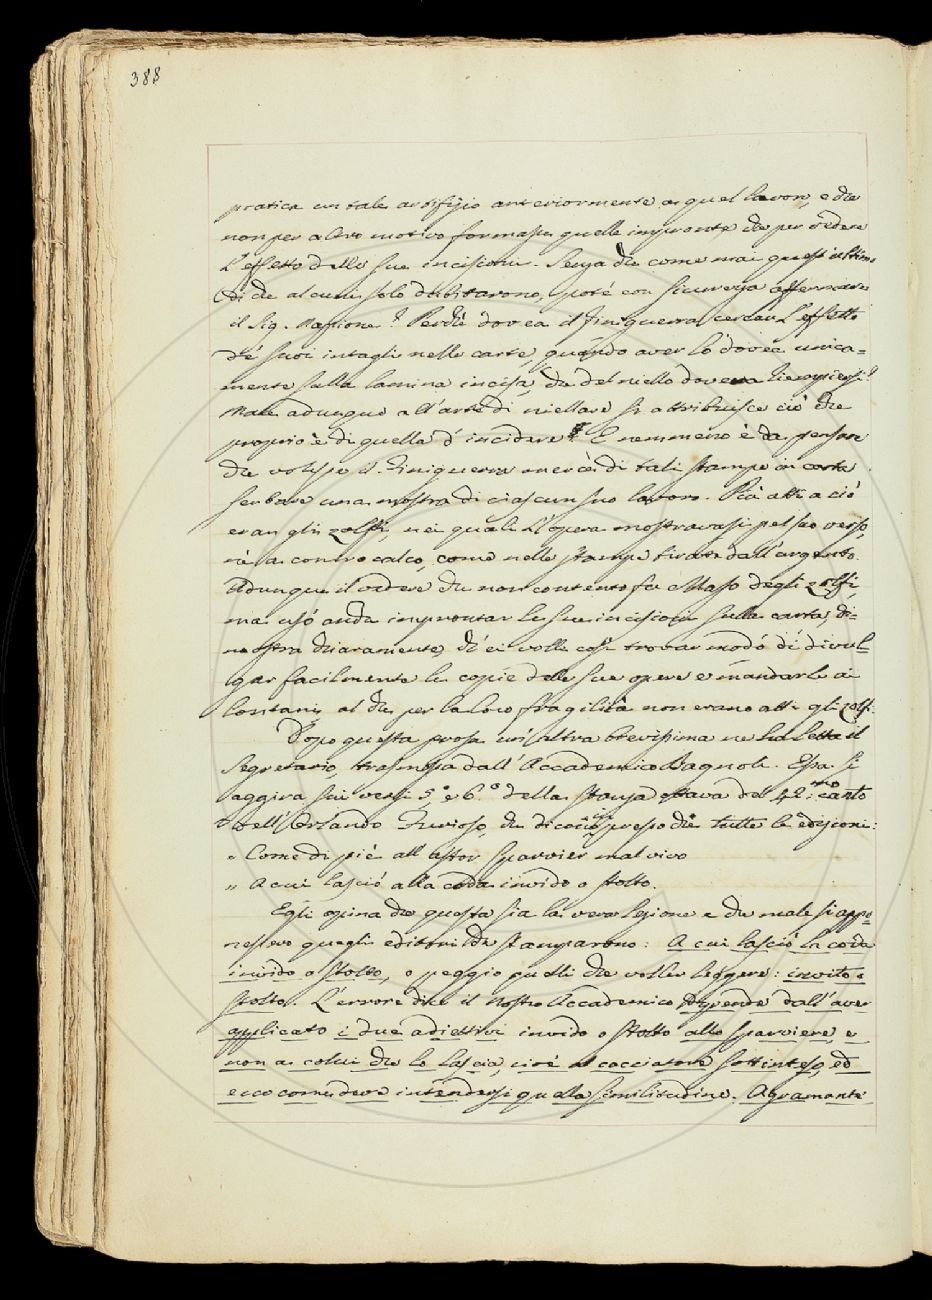 388
pratica un tale artifizio anteriormente a quel lavoro, e che
non per altro motivo formasse quelle impronte che per vedere
l'effetto delle sue incisioni. Senza che come mai quest'ultimo
di che alcuni solo dubitarono, poté con sicurezza affermare
il Sig. Masione? Perchè dovea il Finiguerra cercar l'effetto
de' suoi intagli nelle carte quando aver lo dovea unica=
mente sulla lamina incisa, che del niello doveva riempiersi?
Male adunque all'arte di niellare si attribuisce ciò che
proprio è di quella d'incidere. E nemmeno è da pensare
che volesse il Finiguerra mercè di tali stampe in carta
serbare una mostra di ciascun suo lavoro. Più atti a ciò
eran gli zolfi, nei quali l'opera mostravasi pel suo verso,
nè a contro calco, come nelle stampe tirate dall'argento.
Adunque il vedere che non contento fu Maso degli zolfi,
ma usò anche improntar le sue incisioni sulla carta, di=
mostra chiaramente, ch'ei volle così trovar modo di divul=
gar facilmente le copie delle sue opere e mandarle ai
lontani, al che per la loro fragilità non erano atti gli zolfi.
Dopo questa prosa un'altra brevissima ne ha letta il
Segretario, trasmessa dall'Accademico Bagnoli. Essa si
aggira sui versi 5.º e 6.º della stanza ottava del 42.mo canto
dell'Orlando Furioso, che dicon così presso che tutte le edizioni:
" Come di piè all'astor sparvier mal vivo
" A cui lasciò alla coda invido o stolto.
Egli opina che questa sia la vera lezione e che male si appo=
nessero quegli editori che stamparono: A cui lasciò la coda
invido o stolto, o peggio quelli che voller leggere: invito e
stolto. L'errore dice il nostro Accademico dipende dall'aver
applicato i due adiettivi invido o stolto allo sparviere, e
non a colui che lo lascia, cioè al cacciatore sottinteso, ed
ecco come deve intendersi quella similitudine. Agramante